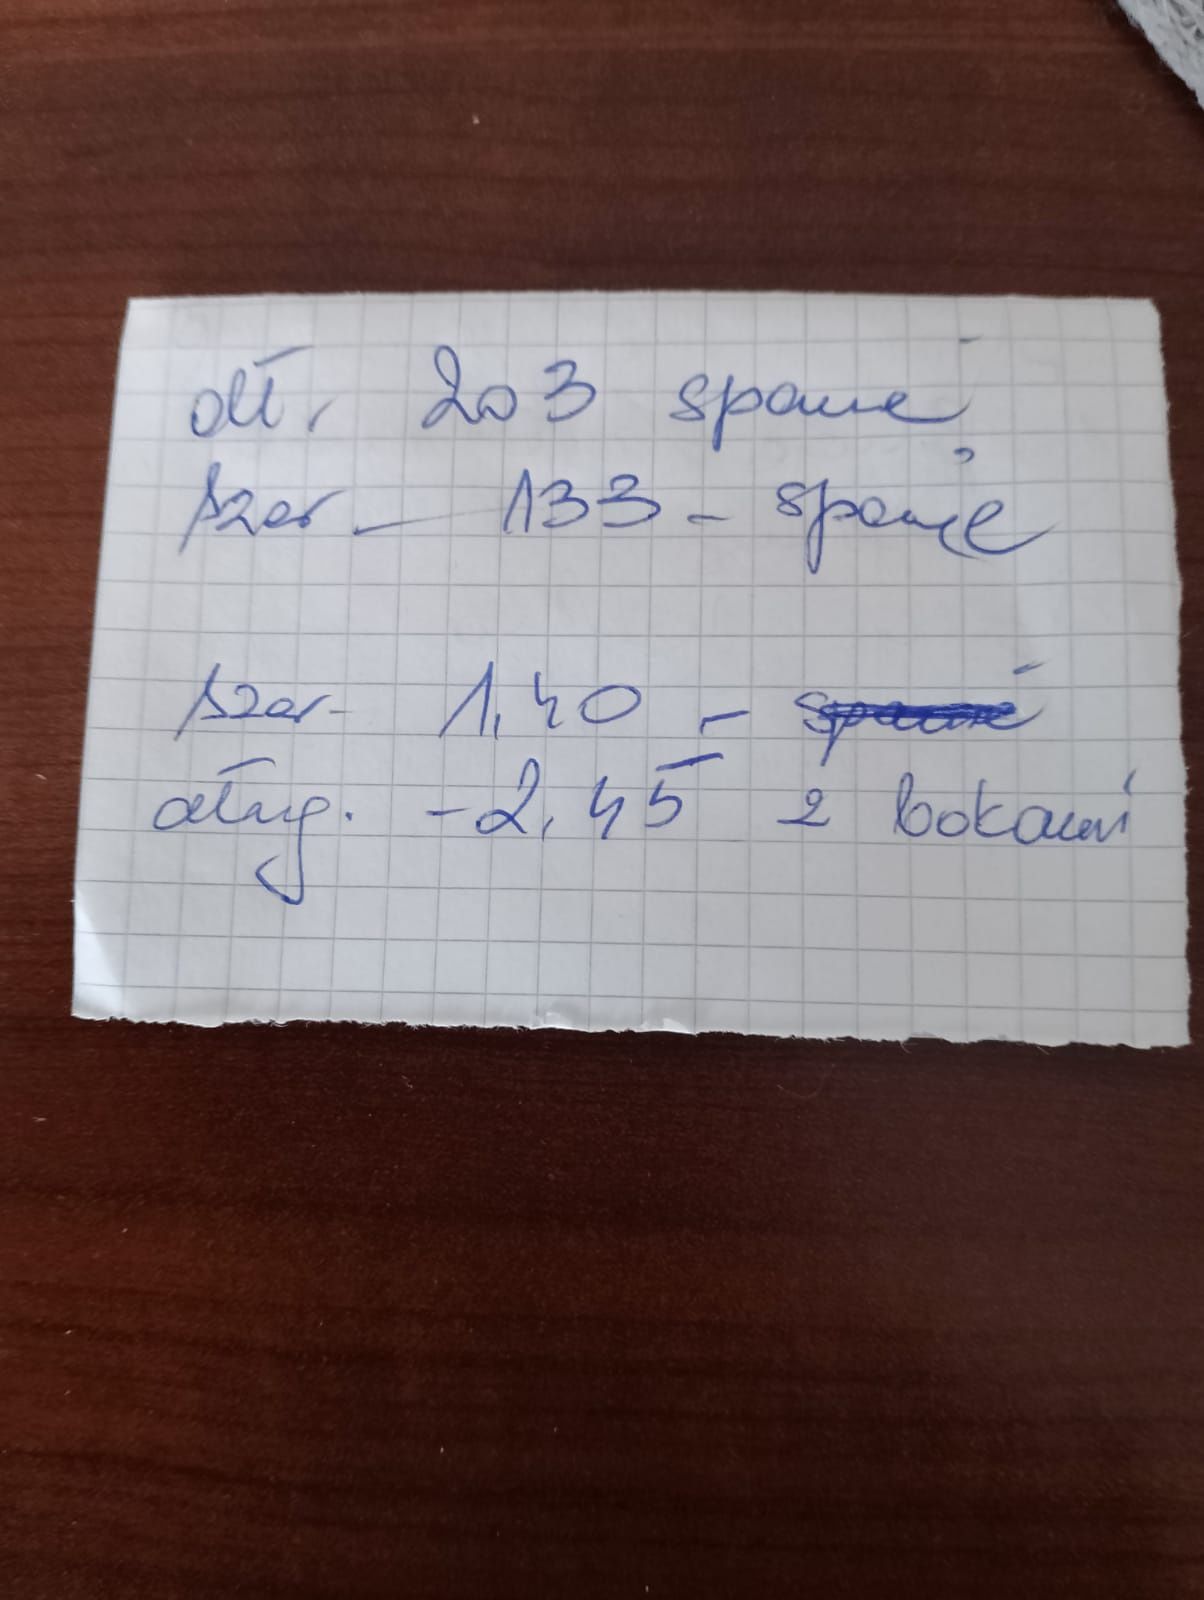 dł. 203 spanie
szer - 133 - spanie
szer - 1,40 -
dług. - 2,45 z bokami